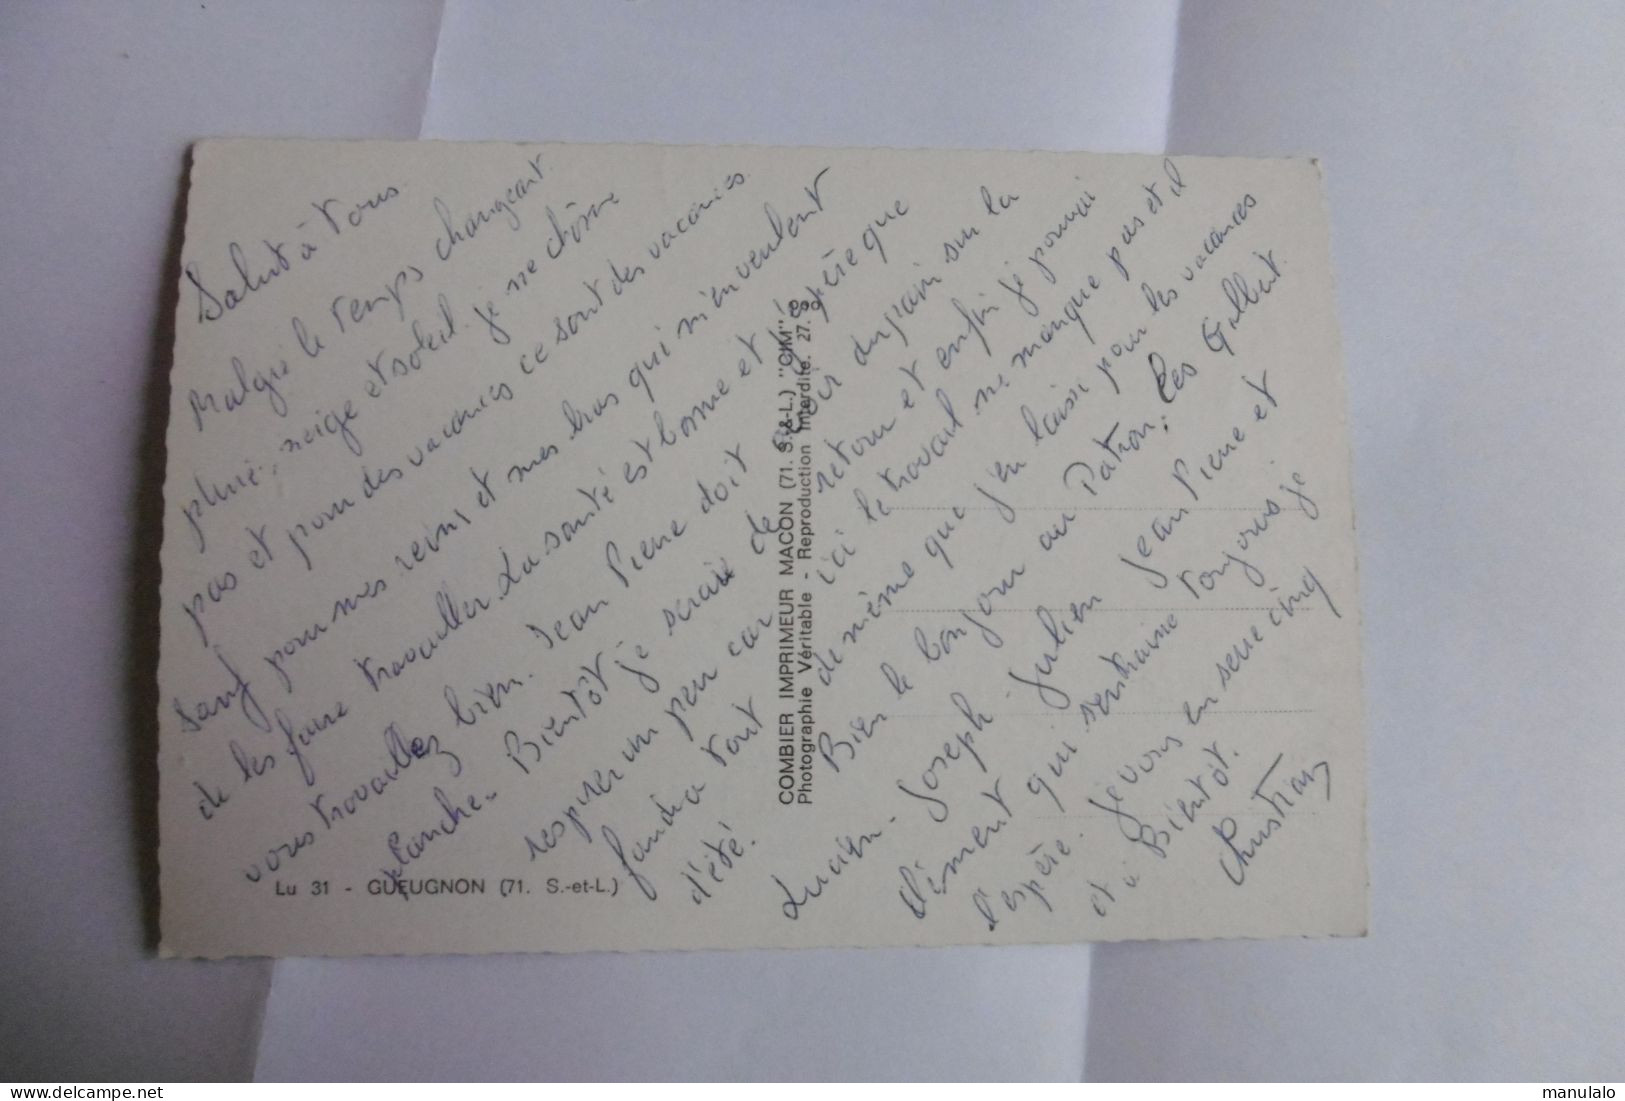 Salut à Tous.
Malgré le temps changeant.
pluie, neige et soleil. je ne chôme
pas et pour des vacances ce sont des vacances.
Sauf pour mes reins et mes bras qui m'en veulent
de les faire travailler. La santé est bonne et j'espère que
vous travaillez bien. Jean Pierre doit avoir du pain sur la
planche. Bientôt je serai de retour et enfin je pourrai
respirer un peu car ici le travail ne manque pas et il
faudra tout de même que j'en laisse pour les vacances
d'été. Bien le bonjour au Patron, les Gallut.
Lucien - Joseph - Julien Jean Pierre et
Clément qui s'entraine toujours je
l'espère. Je vous en serre cinq
et à Bientôt.
Christian
COMBIER IMPRIMEUR MACON (71. S.-&-L.) "CIM"
Photographie Véritable - Reproduction Interdite. 27.
Lu 31 - GUEUGNON (71. S.-et-L.)
manulalo